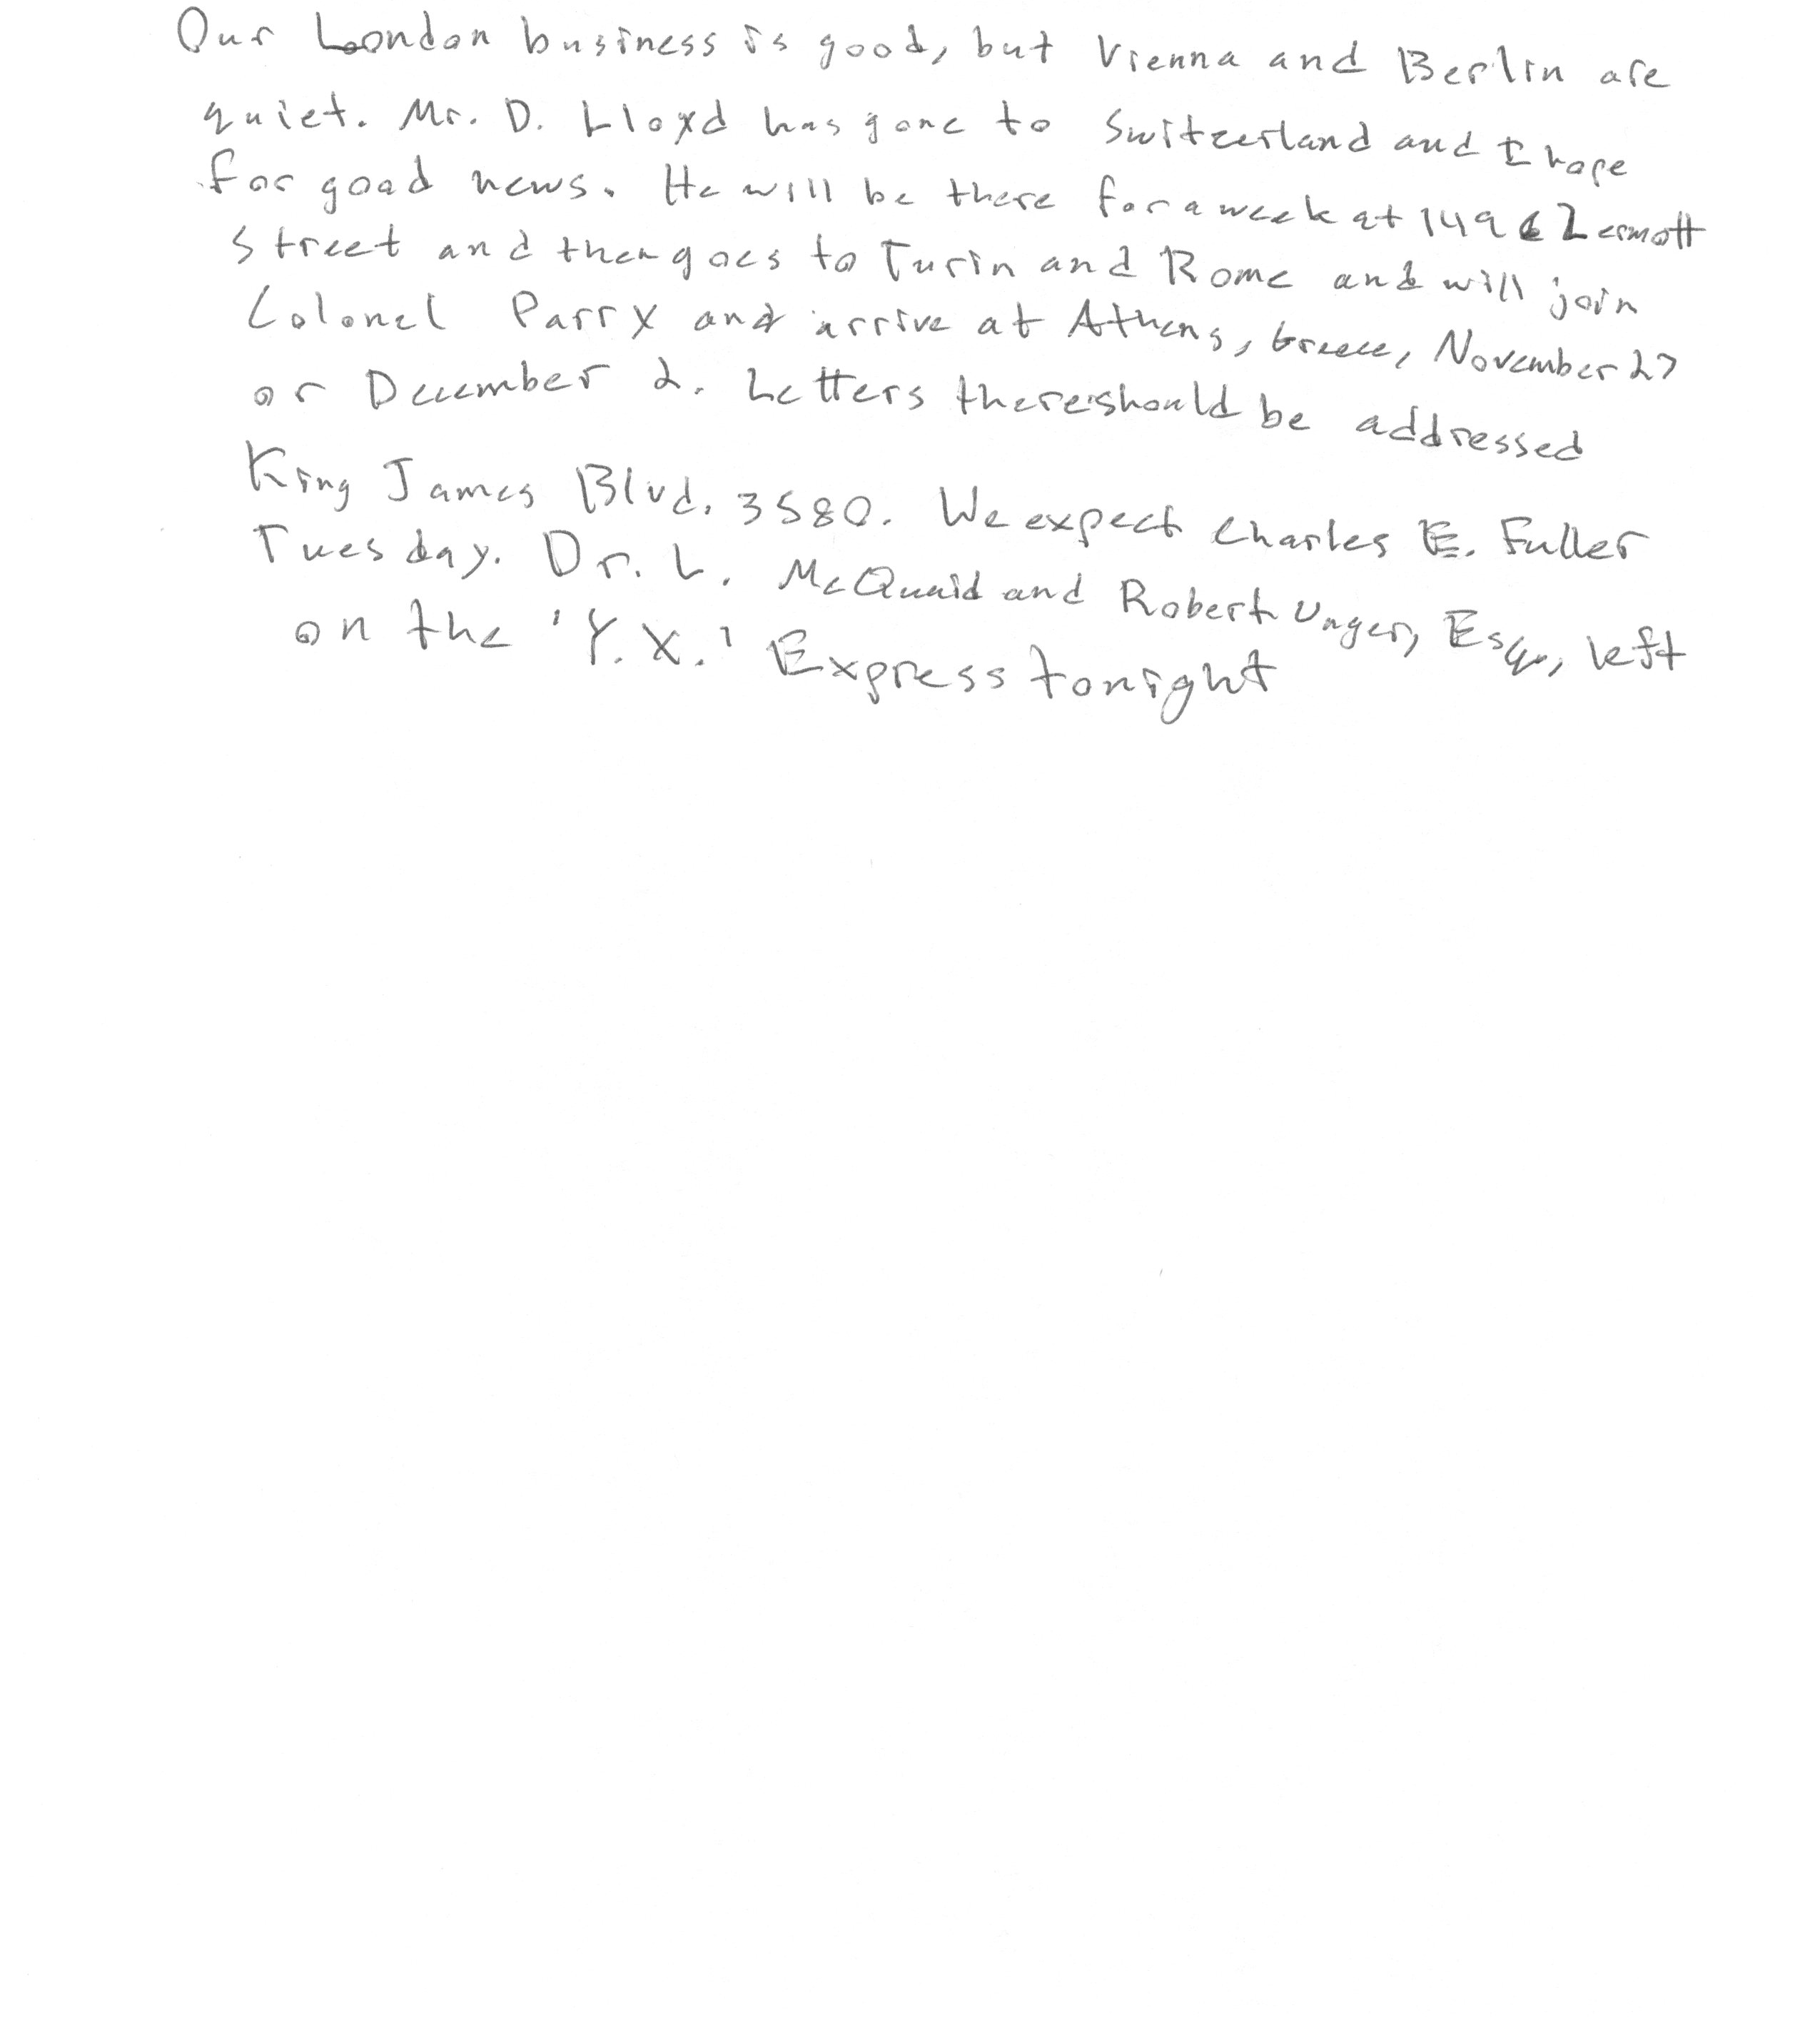 Our London business is good, but Vienna and Berlin are
quiet. Mr. D. Lloyd has gone to Switzerland and I hope
for good news. He will be there for a week at 1496 Zermott
Street and then goes to Turin and Rome and will join
Colonel Parry and arrive at Athens, Greece, November 27
or December 2. Letters there should be addressed
King James Blvd. 3580. We expect Charles E. Fuller
Tuesday. Dr. L. McQuaid and Robert Unger, Esq., left
on the 'Y.X.' Express tonight